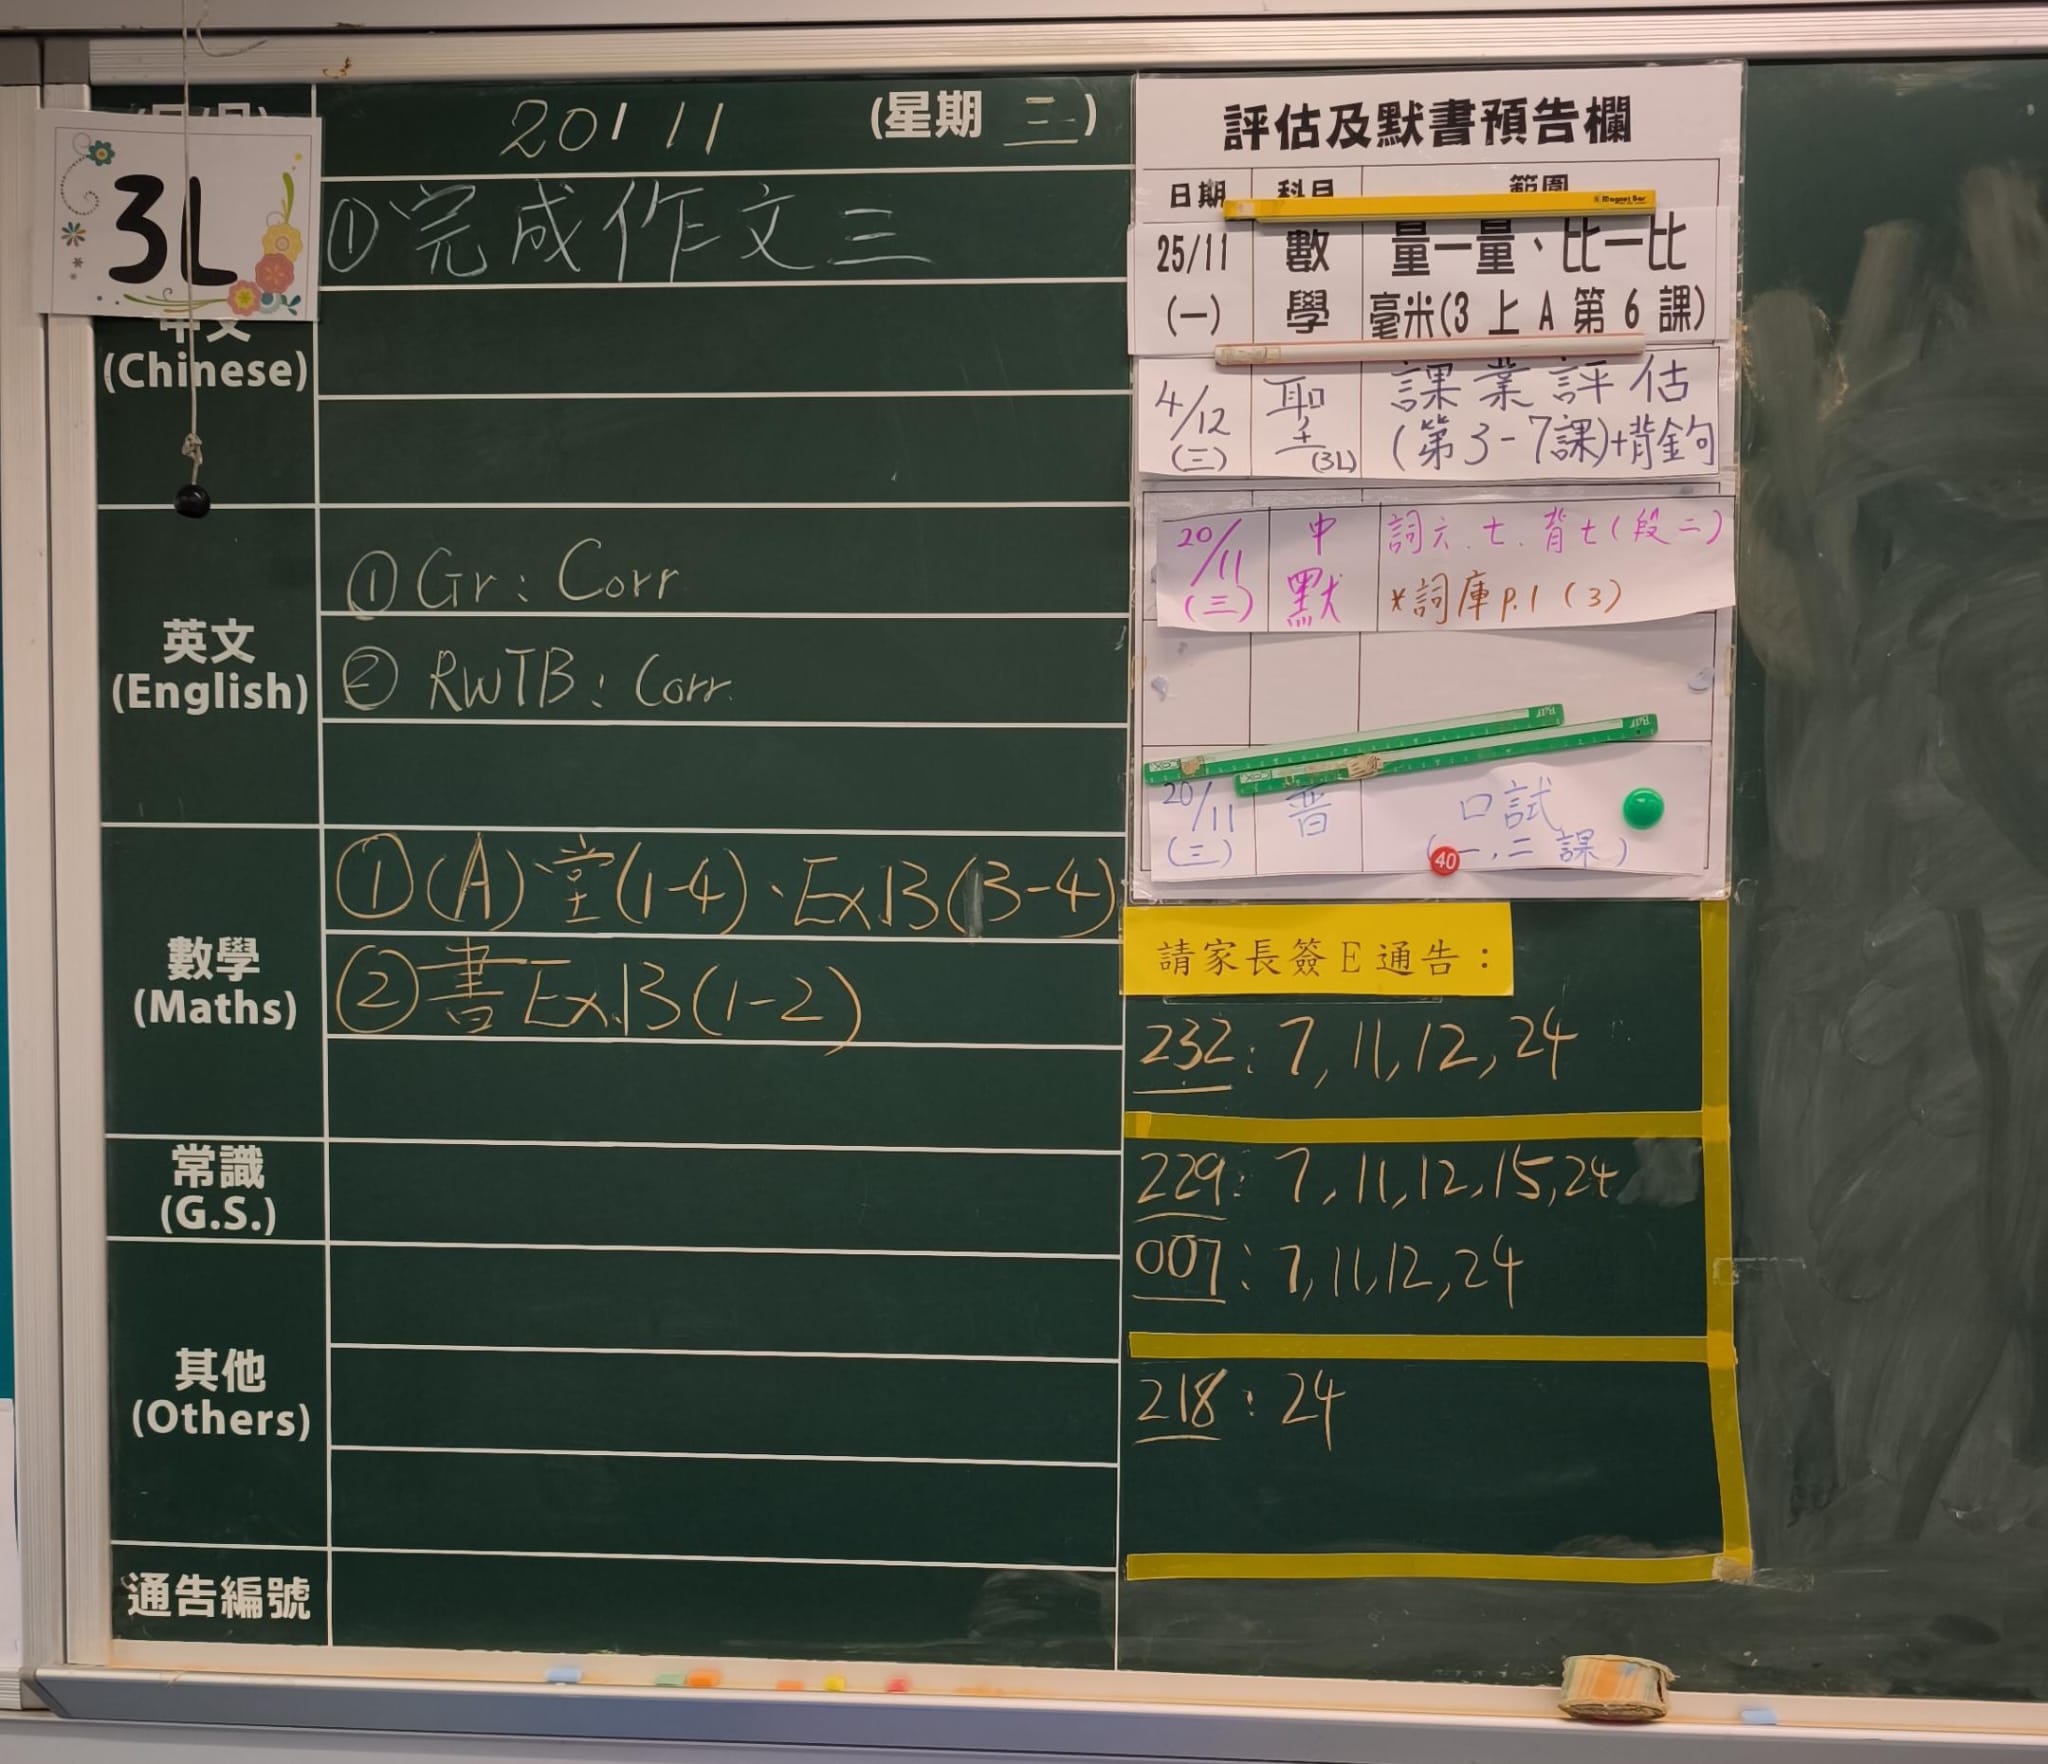 3L
20 / 11 (星期 三)
①完成作文三
中文
(Chinese)
英文
(English)
①Gr: Corr
② RWTB: Corr.
數學
(Maths)
①(A)堂(1-4)、Ex13(3-4)
②書Ex.13(1-2)
常識
(G.S.)
其他
(Others)
通告編號
評估及默書預告欄
日期 科目 範圍
Magnet Bar
25/11 數 量一量、比一比
(一) 學 毫米(3 上 A 第 6 課)
4/12 聖 課業評估
(三) (3L) (第3-7課)+背金句
20/11 中 詞六.七.背七(段二)
(三) 默 *詞庫p.1 (3)
20/11 普 口試
(三) (一,二課)
40
請家長簽E通告:
232: 7, 11, 12, 24
229: 7, 11, 12, 15, 24
007: 7, 11, 12, 24
218: 24